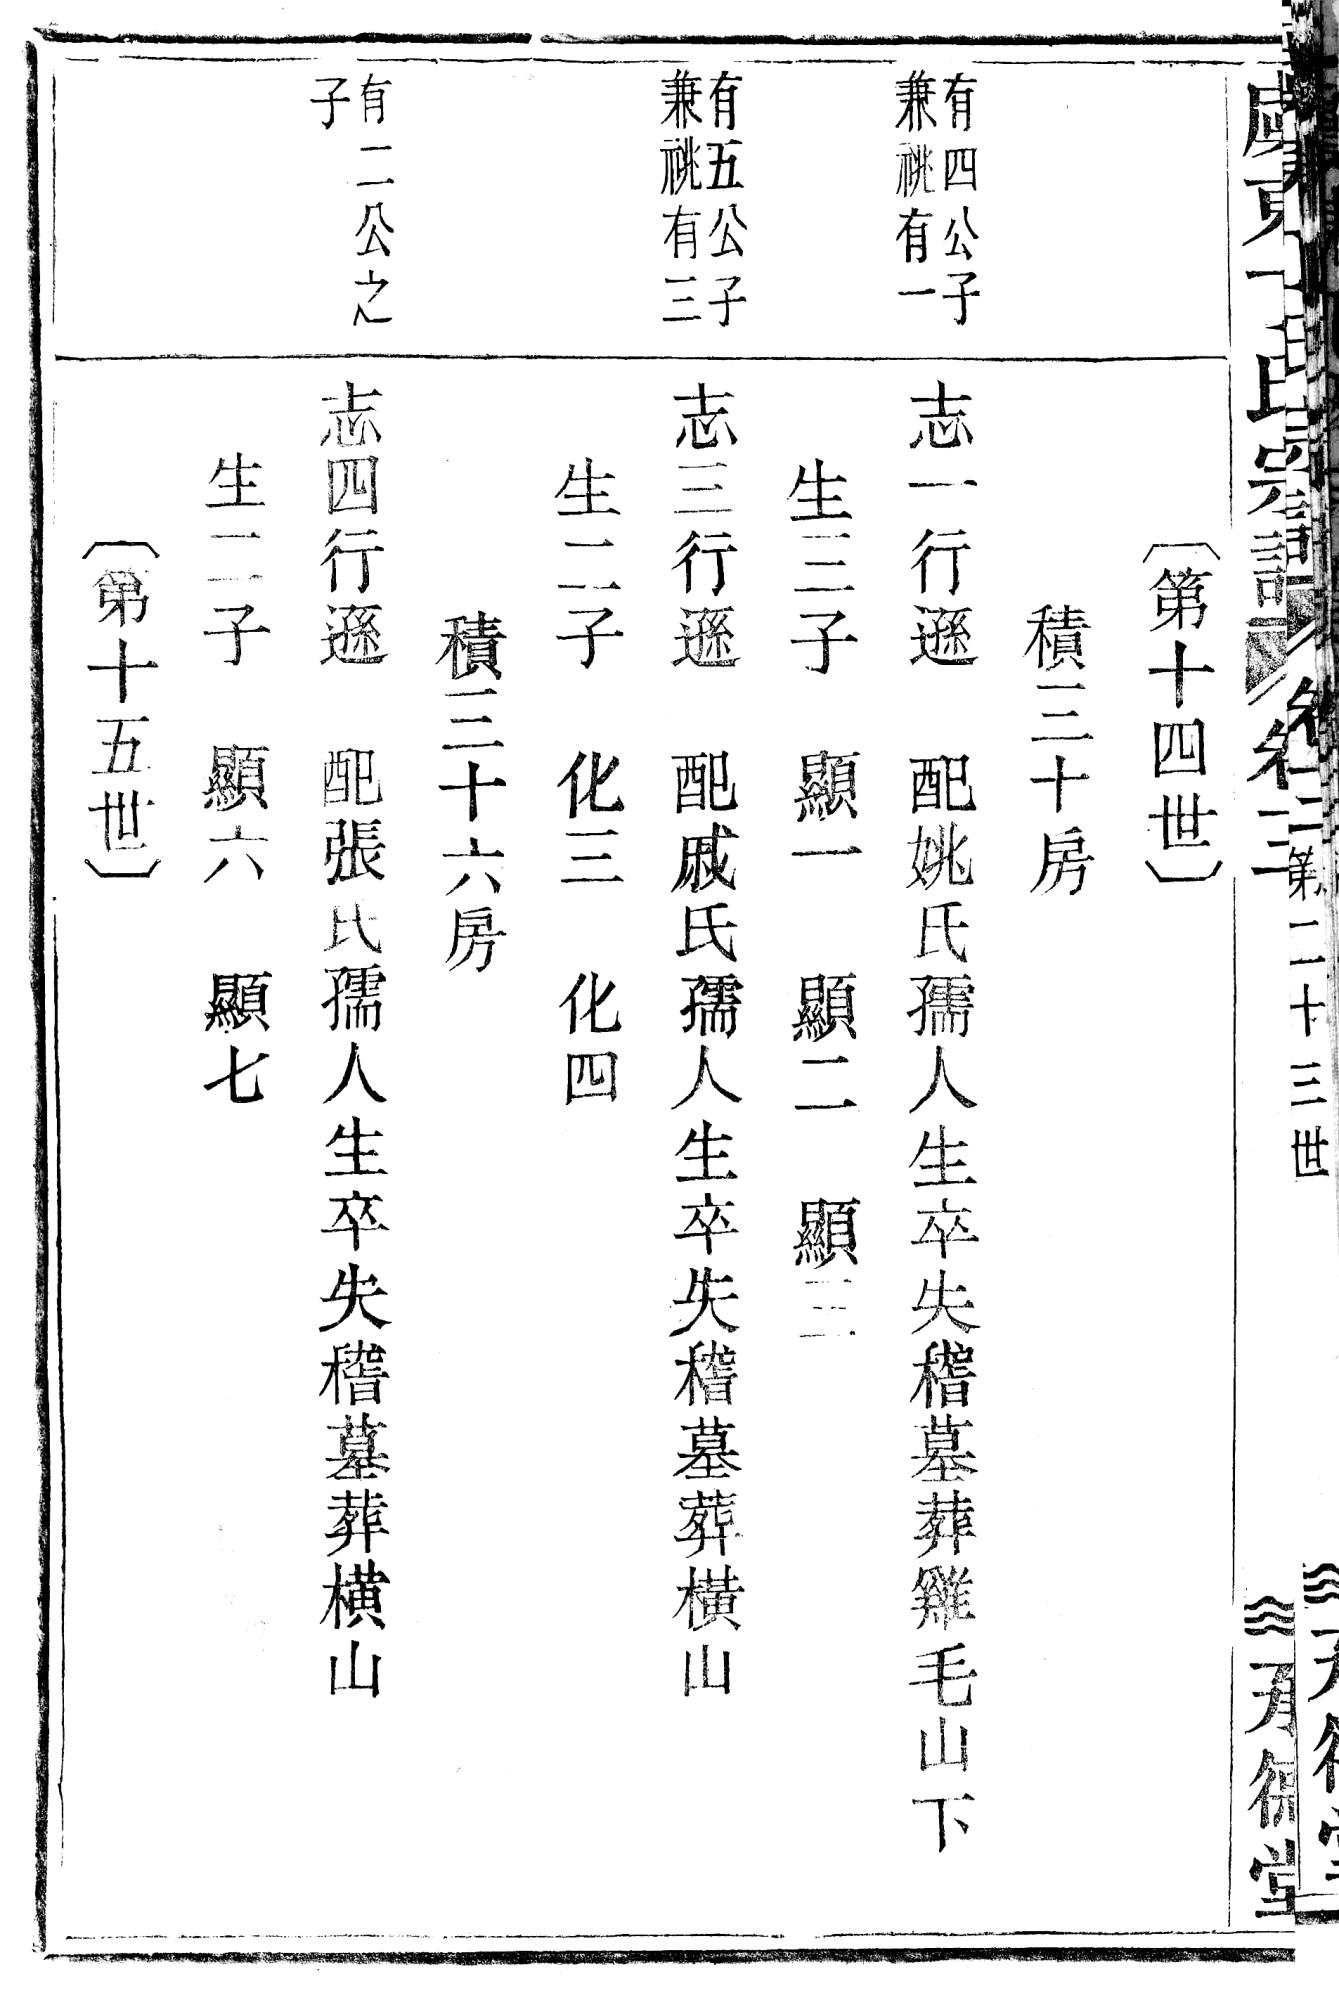 氏宗譜 卷三
承德堂
第二十三世
〔第十四世〕
積三十房
有四公子
兼祧有一
志一行遜 配姚氏孺人生卒失稽墓葬雞毛山下
生三子 顯一 顯二 顯三
有五公子
兼祧有三
志三行遜 配戚氏孺人生卒失稽墓葬橫山
生二子 化三 化四
積三十六房
有二公之
子
志四行遜 配張氏孺人生卒失稽墓葬橫山
生二子 顯六 顯七
〔第十五世〕